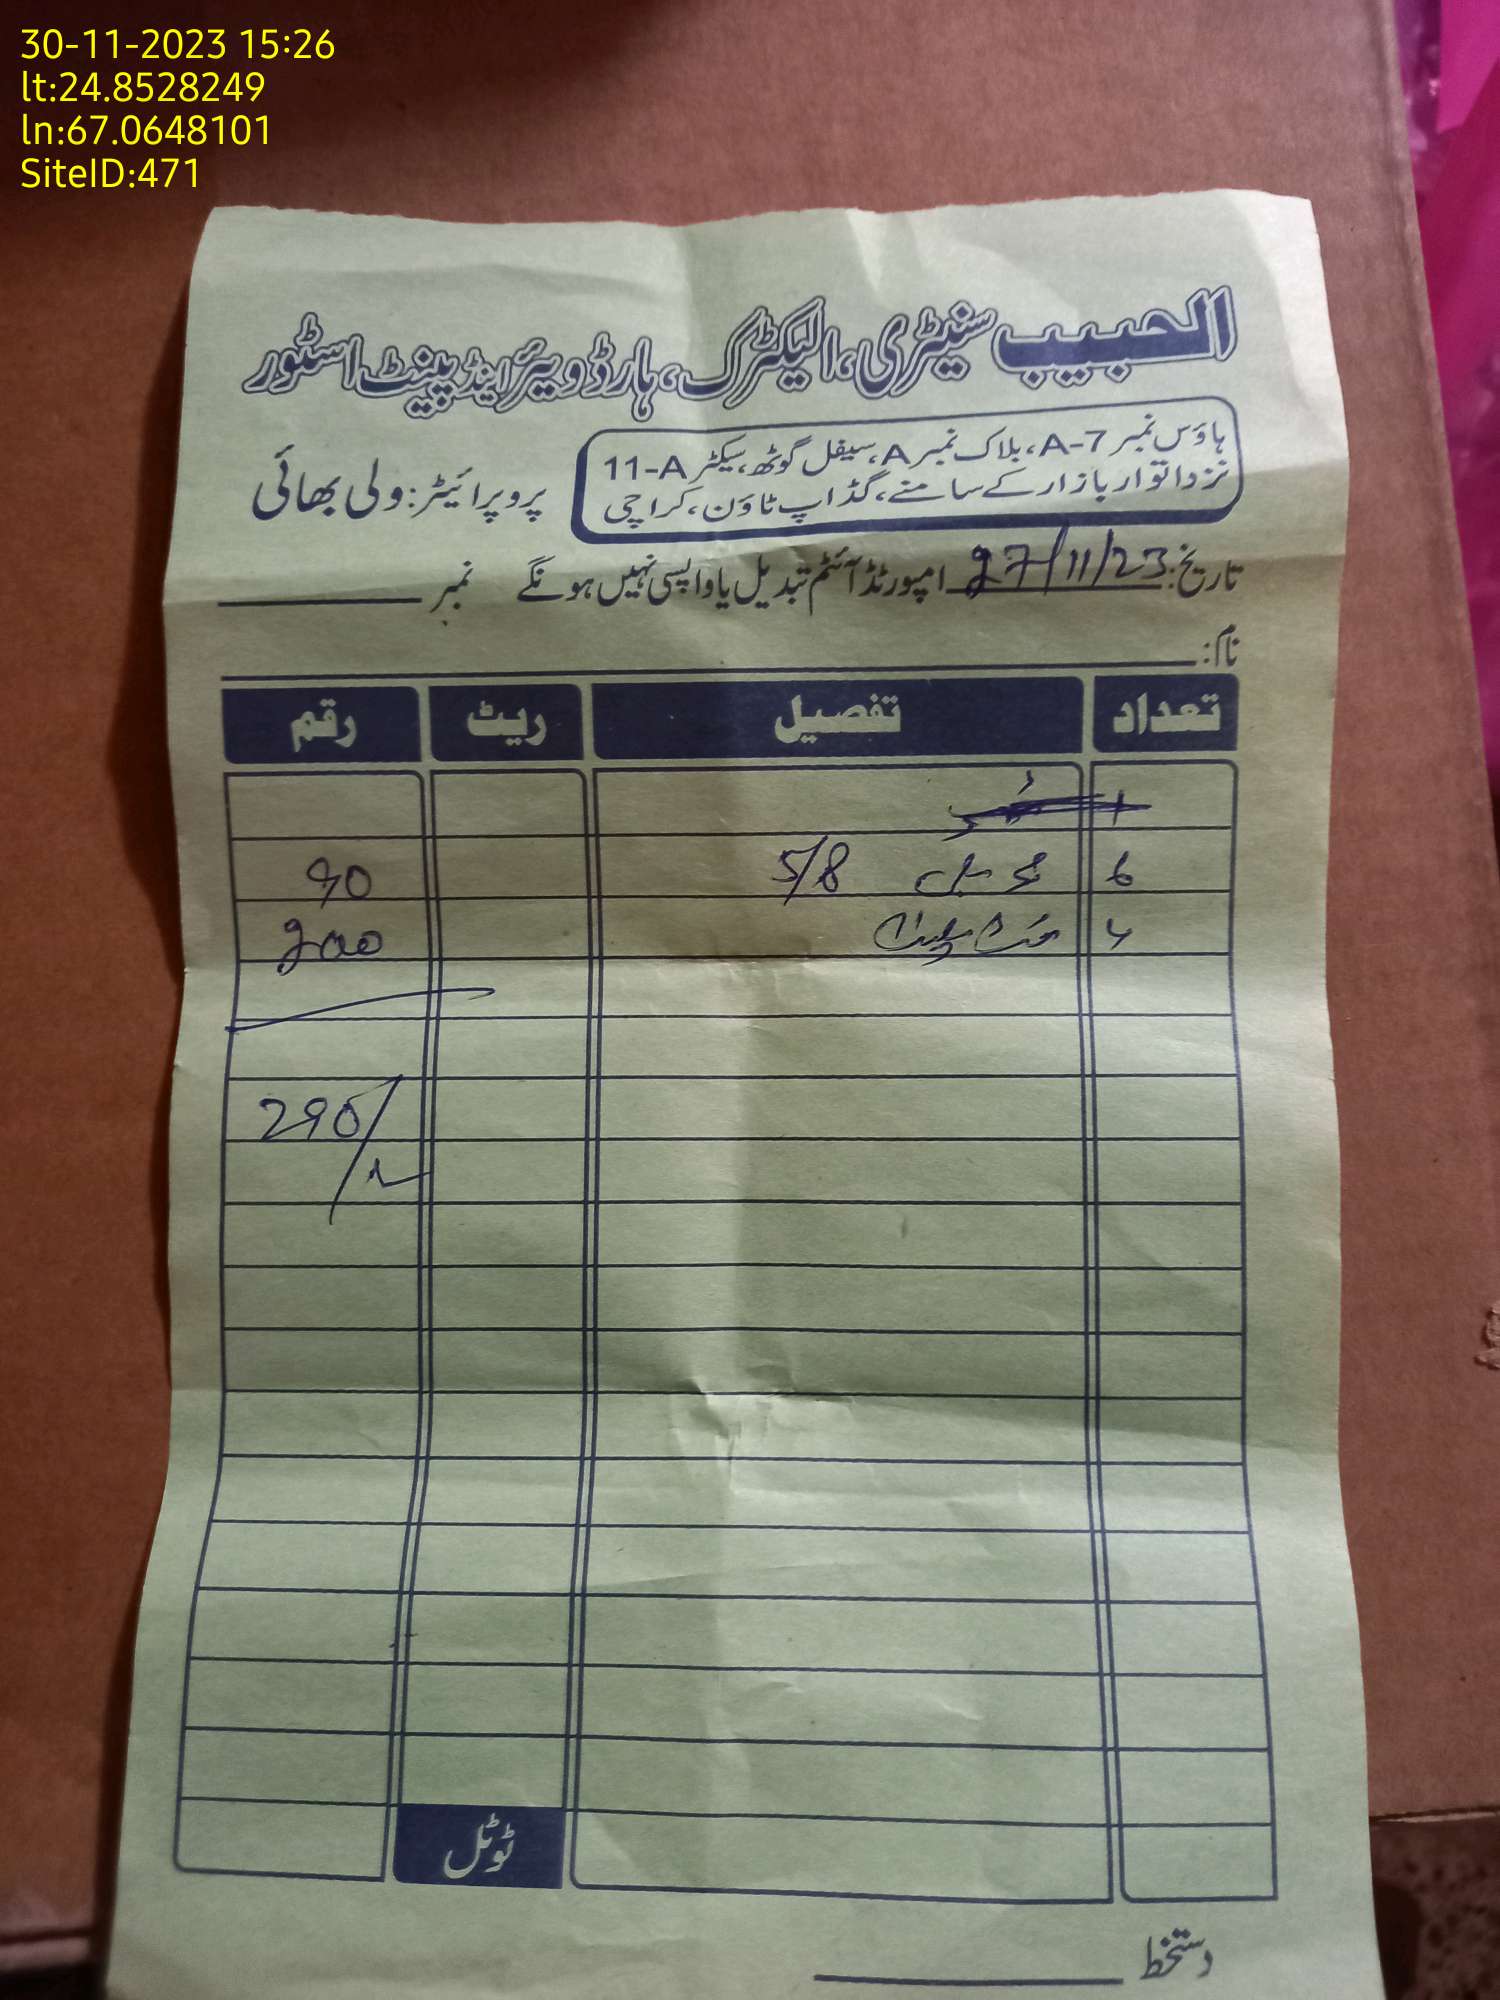 30-11-2023 15:26
lt:24.8528249
ln:67.0648101
SiteID:471
الحبیب سنیٹری، الیکٹرک، ہارڈویئر اینڈ پینٹ اسٹور
ہاؤس نمبر A-7، بلاک نمبر A، سیفل گوٹھ، سیکٹر 11-A
نزد اتوار بازار کے سامنے، گڈاپ ٹاؤن، کراچی
پروپرائیٹر: ولی بھائی
تاریخ: 27/11/23 امپورٹڈ آئٹم تبدیل یا واپسی نہیں ہونگے نمبر
نام:
تعداد تفصیل ریٹ رقم
6 5/8 90
پلیٹ 200
290/
ٹوٹل
دستخط